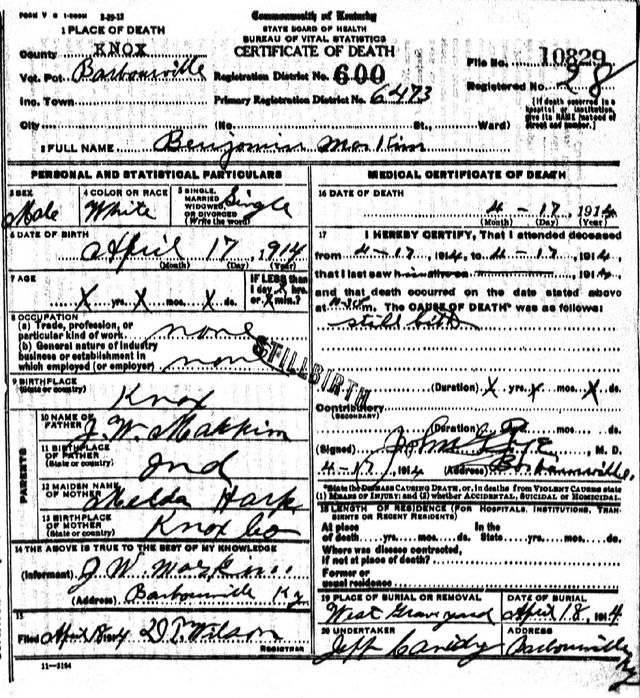 FORM V S 1-200M 3-29-13
Commonwealth of Kentucky
STATE BOARD OF HEALTH
BUREAU OF VITAL STATISTICS
CERTIFICATE OF DEATH
1 PLACE OF DEATH
County KNOX
Vot. Pct. Barbourville
Inc. Town
City (No. St., Ward)
Registration District No. 600
Primary Registration District No. 6473
File No. 10829
Registered No. 28
[If death occurred in a hospital or institution, give its NAME instead of street and number.]
2 FULL NAME Benjamin
PERSONAL AND STATISTICAL PARTICULARS
3 SEX Male
4 COLOR OR RACE White
5 SINGLE, MARRIED WIDOWED, OR DIVORCED (Write the word) Single
6 DATE OF BIRTH April 17, 1914
(Month) (Day) (Year)
7 AGE X yrs. X mos. X ds.
IF LESS than 1 day X hrs. or X min.?
8 OCCUPATION
(a) Trade, profession, or particular kind of work none
(b) General nature of industry business or establishment in which employed (or employer) non
STILLBIRTH
9 BIRTHPLACE (State or country) Knox
PARENTS
10 NAME OF FATHER J. W.
11 BIRTHPLACE OF FATHER (State or country) Ind
12 MAIDEN NAME OF MOTHER Harp
13 BIRTHPLACE OF MOTHER (State or country) Knox Co
14 THE ABOVE IS TRUE TO THE BEST OF MY KNOWLEDGE
(Informant) J W
(Address) Barbourville Ky
15
Filed April 18 1914 Wilson
REGISTRAR
11-3184
MEDICAL CERTIFICATE OF DEATH
16 DATE OF DEATH
4 - 17, 1914
(Month) (Day) (Year)
17 I HEREBY CERTIFY, That I attended deceased
from 4-17, 1914, to 4-17, 1914,
that I last saw h 1914,
and that death occurred on the date stated above
at m. The CAUSE OF DEATH* was as follows:
still birth
(Duration) X yrs. X mos. X ds.
Contributory
(SECONDARY)
(Duration) yrs. mos. ds.
(Signed) M. D.
4-17, 1914 (Address) Barbourville
*State the DISEASE CAUSING DEATH, or, in deaths from VIOLENT CAUSES state
(1) MEANS OF INJURY; and (2) whether ACCIDENTAL, SUICIDAL or HOMICIDAL.
18 LENGTH OF RESIDENCE (FOR HOSPITALS, INSTITUTIONS, TRANSIENTS OR RECENT RESIDENTS)
At place of death yrs. mos. ds. In the State yrs. mos. ds.
Where was disease contracted, if not at place of death?
Former or usual residence
19 PLACE OF BURIAL OR REMOVAL West Graveyard
DATE OF BURIAL April 18, 1914
20 UNDERTAKER Jeff
ADDRESS Barbourville Ky